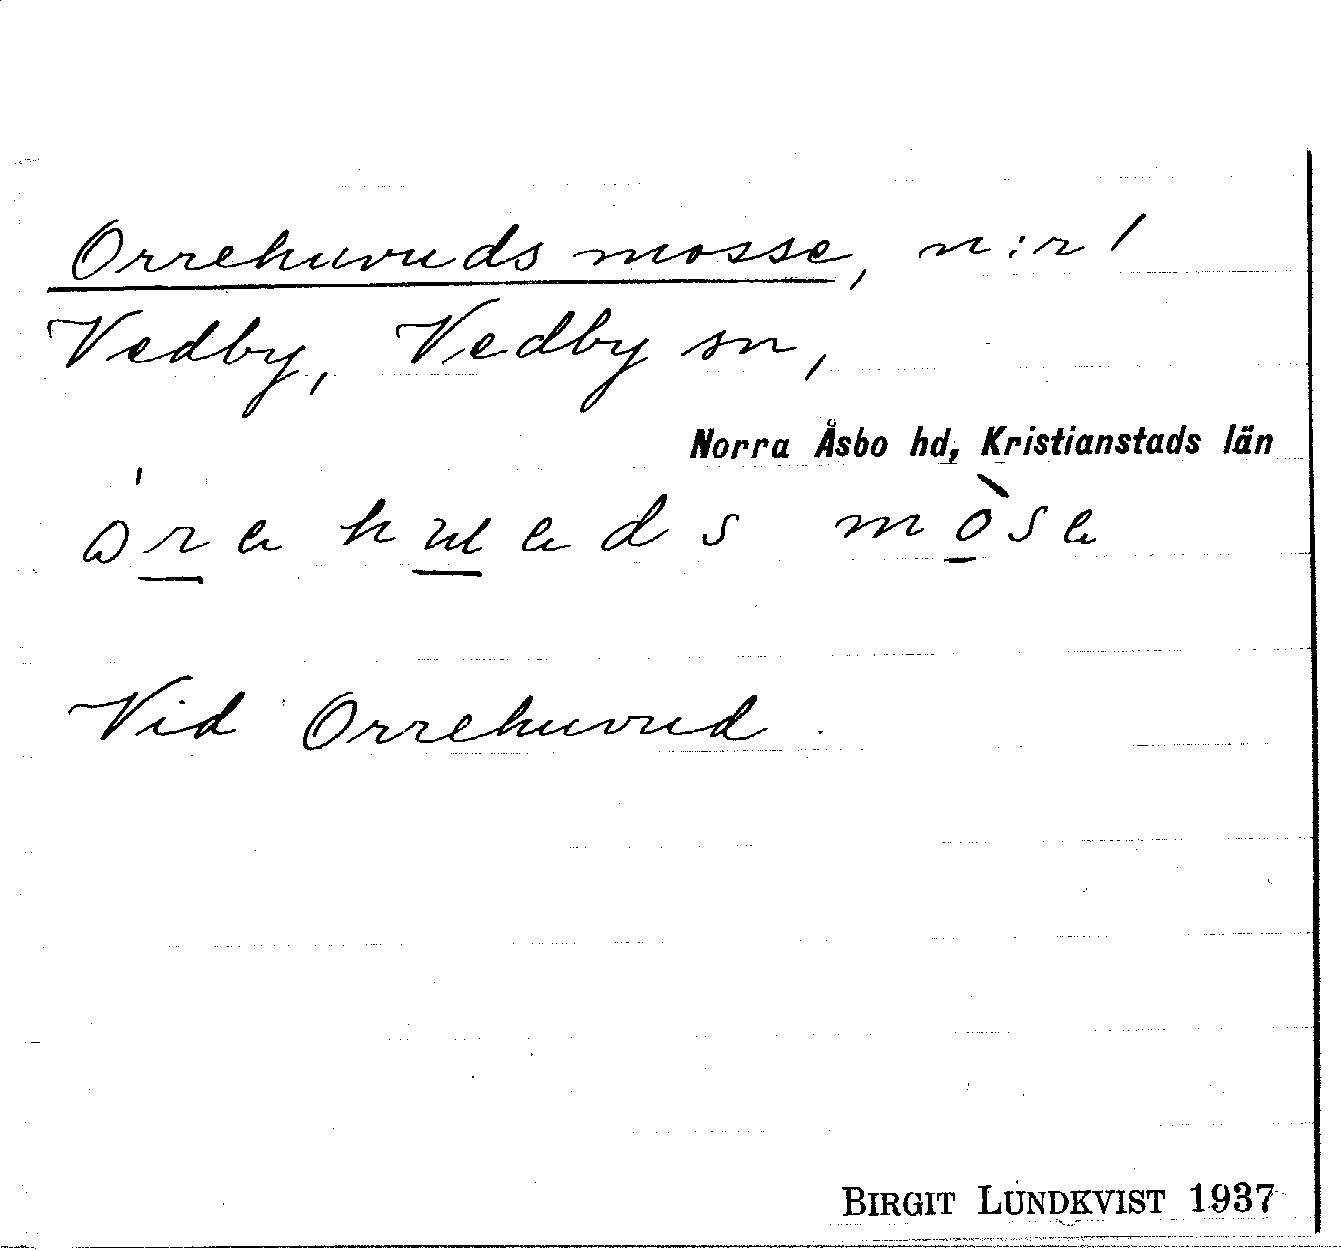 Orrehuvuds mosse, n:r 1
Vedby, Vedby sn,
Norra Åsbo hd, Kristianstads län
Vid Orrehuvud.
BIRGIT LUNDKVIST 1937